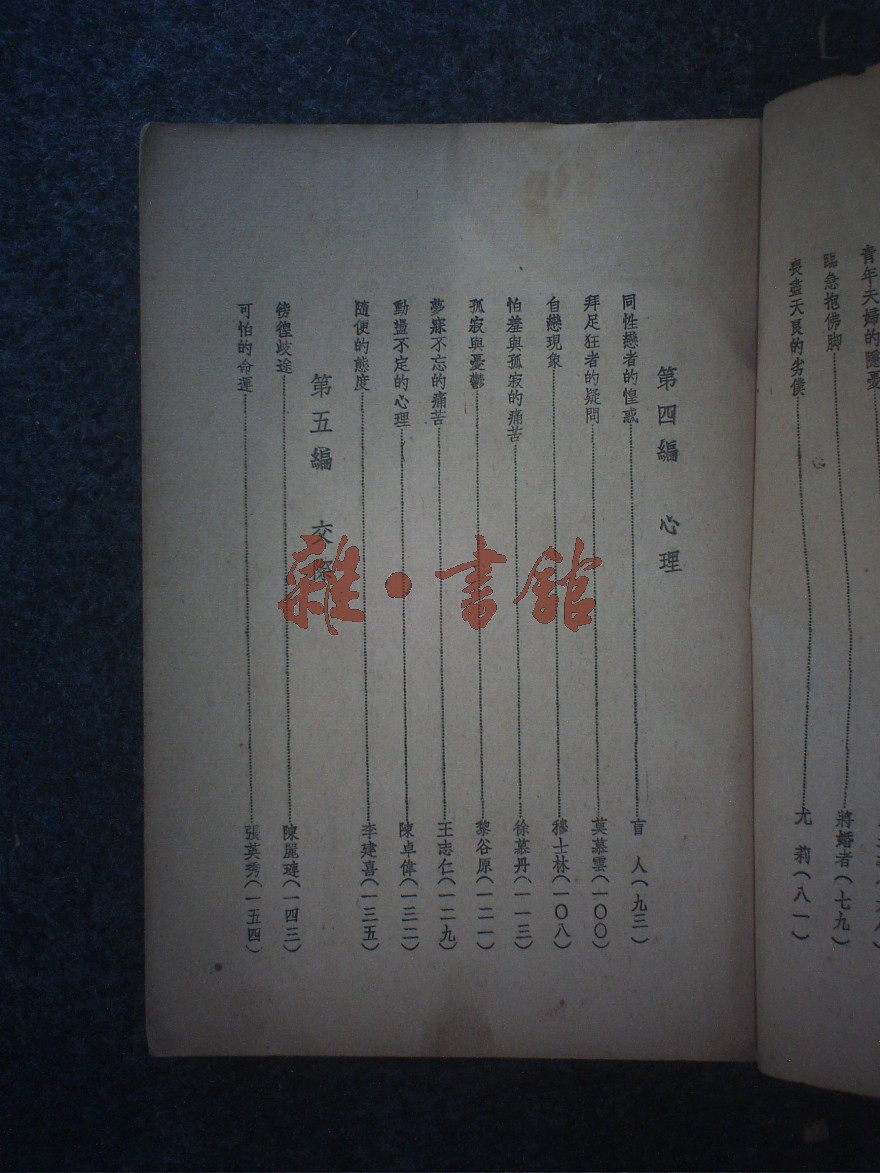 青年夫婦的隱憂
臨急抱佛脚 將婚者(七九)
喪盡天良的劣僕 尤 莉(八一)
第四編 心理
同性戀者的惶惑 盲 人(九三)
拜足狂者的疑問 莫慕雲(一〇〇)
自戀現象 穆士林(一〇八)
怕羞與孤寂的痛苦 徐慕丹(一一三)
孤寂與憂鬱 黎谷原(一二一)
夢寐不忘的痛苦 王志仁(一二九)
動盪不定的心理 陳卓偉(一三二)
隨便的態度 李建喜(一三五)
第五編 交際
徬徨歧途 陳麗璉(一四三)
可怕的命運 張英秀(一五四)
雜·書館